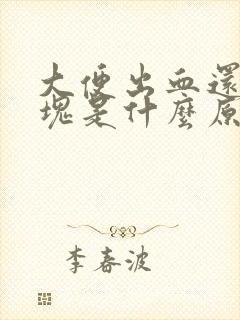 大便出血還
塊是什麼原
李春波